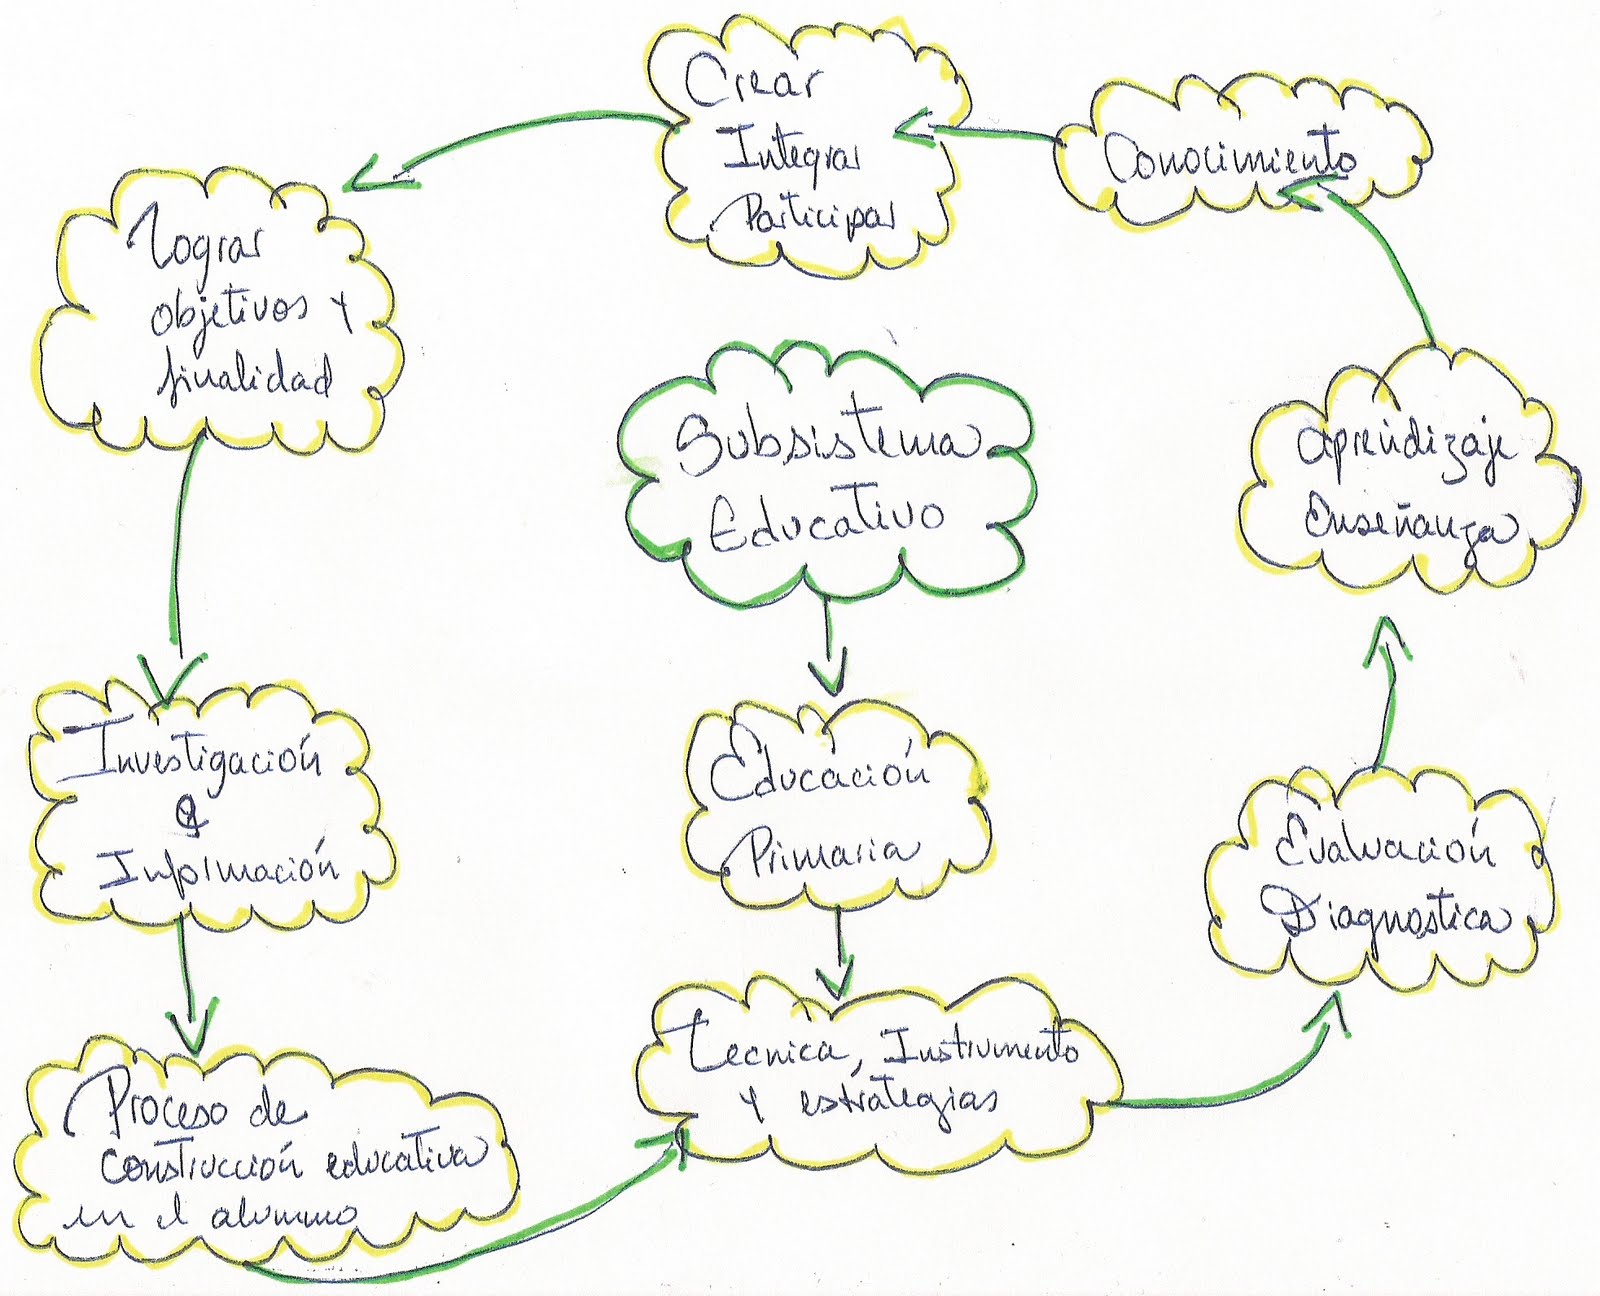 Crear
Integrar
Participar
Conocimiento
Lograr
objetivos y
finalidad
Subsistema
Educativo
Aprendizaje
Enseñanza
Investigación
e
Información
Educación
Primaria
Evaluación
Diagnostica
Tecnica, Instrumento
y estrategias
Proceso de
construcción educativa
en el alumno